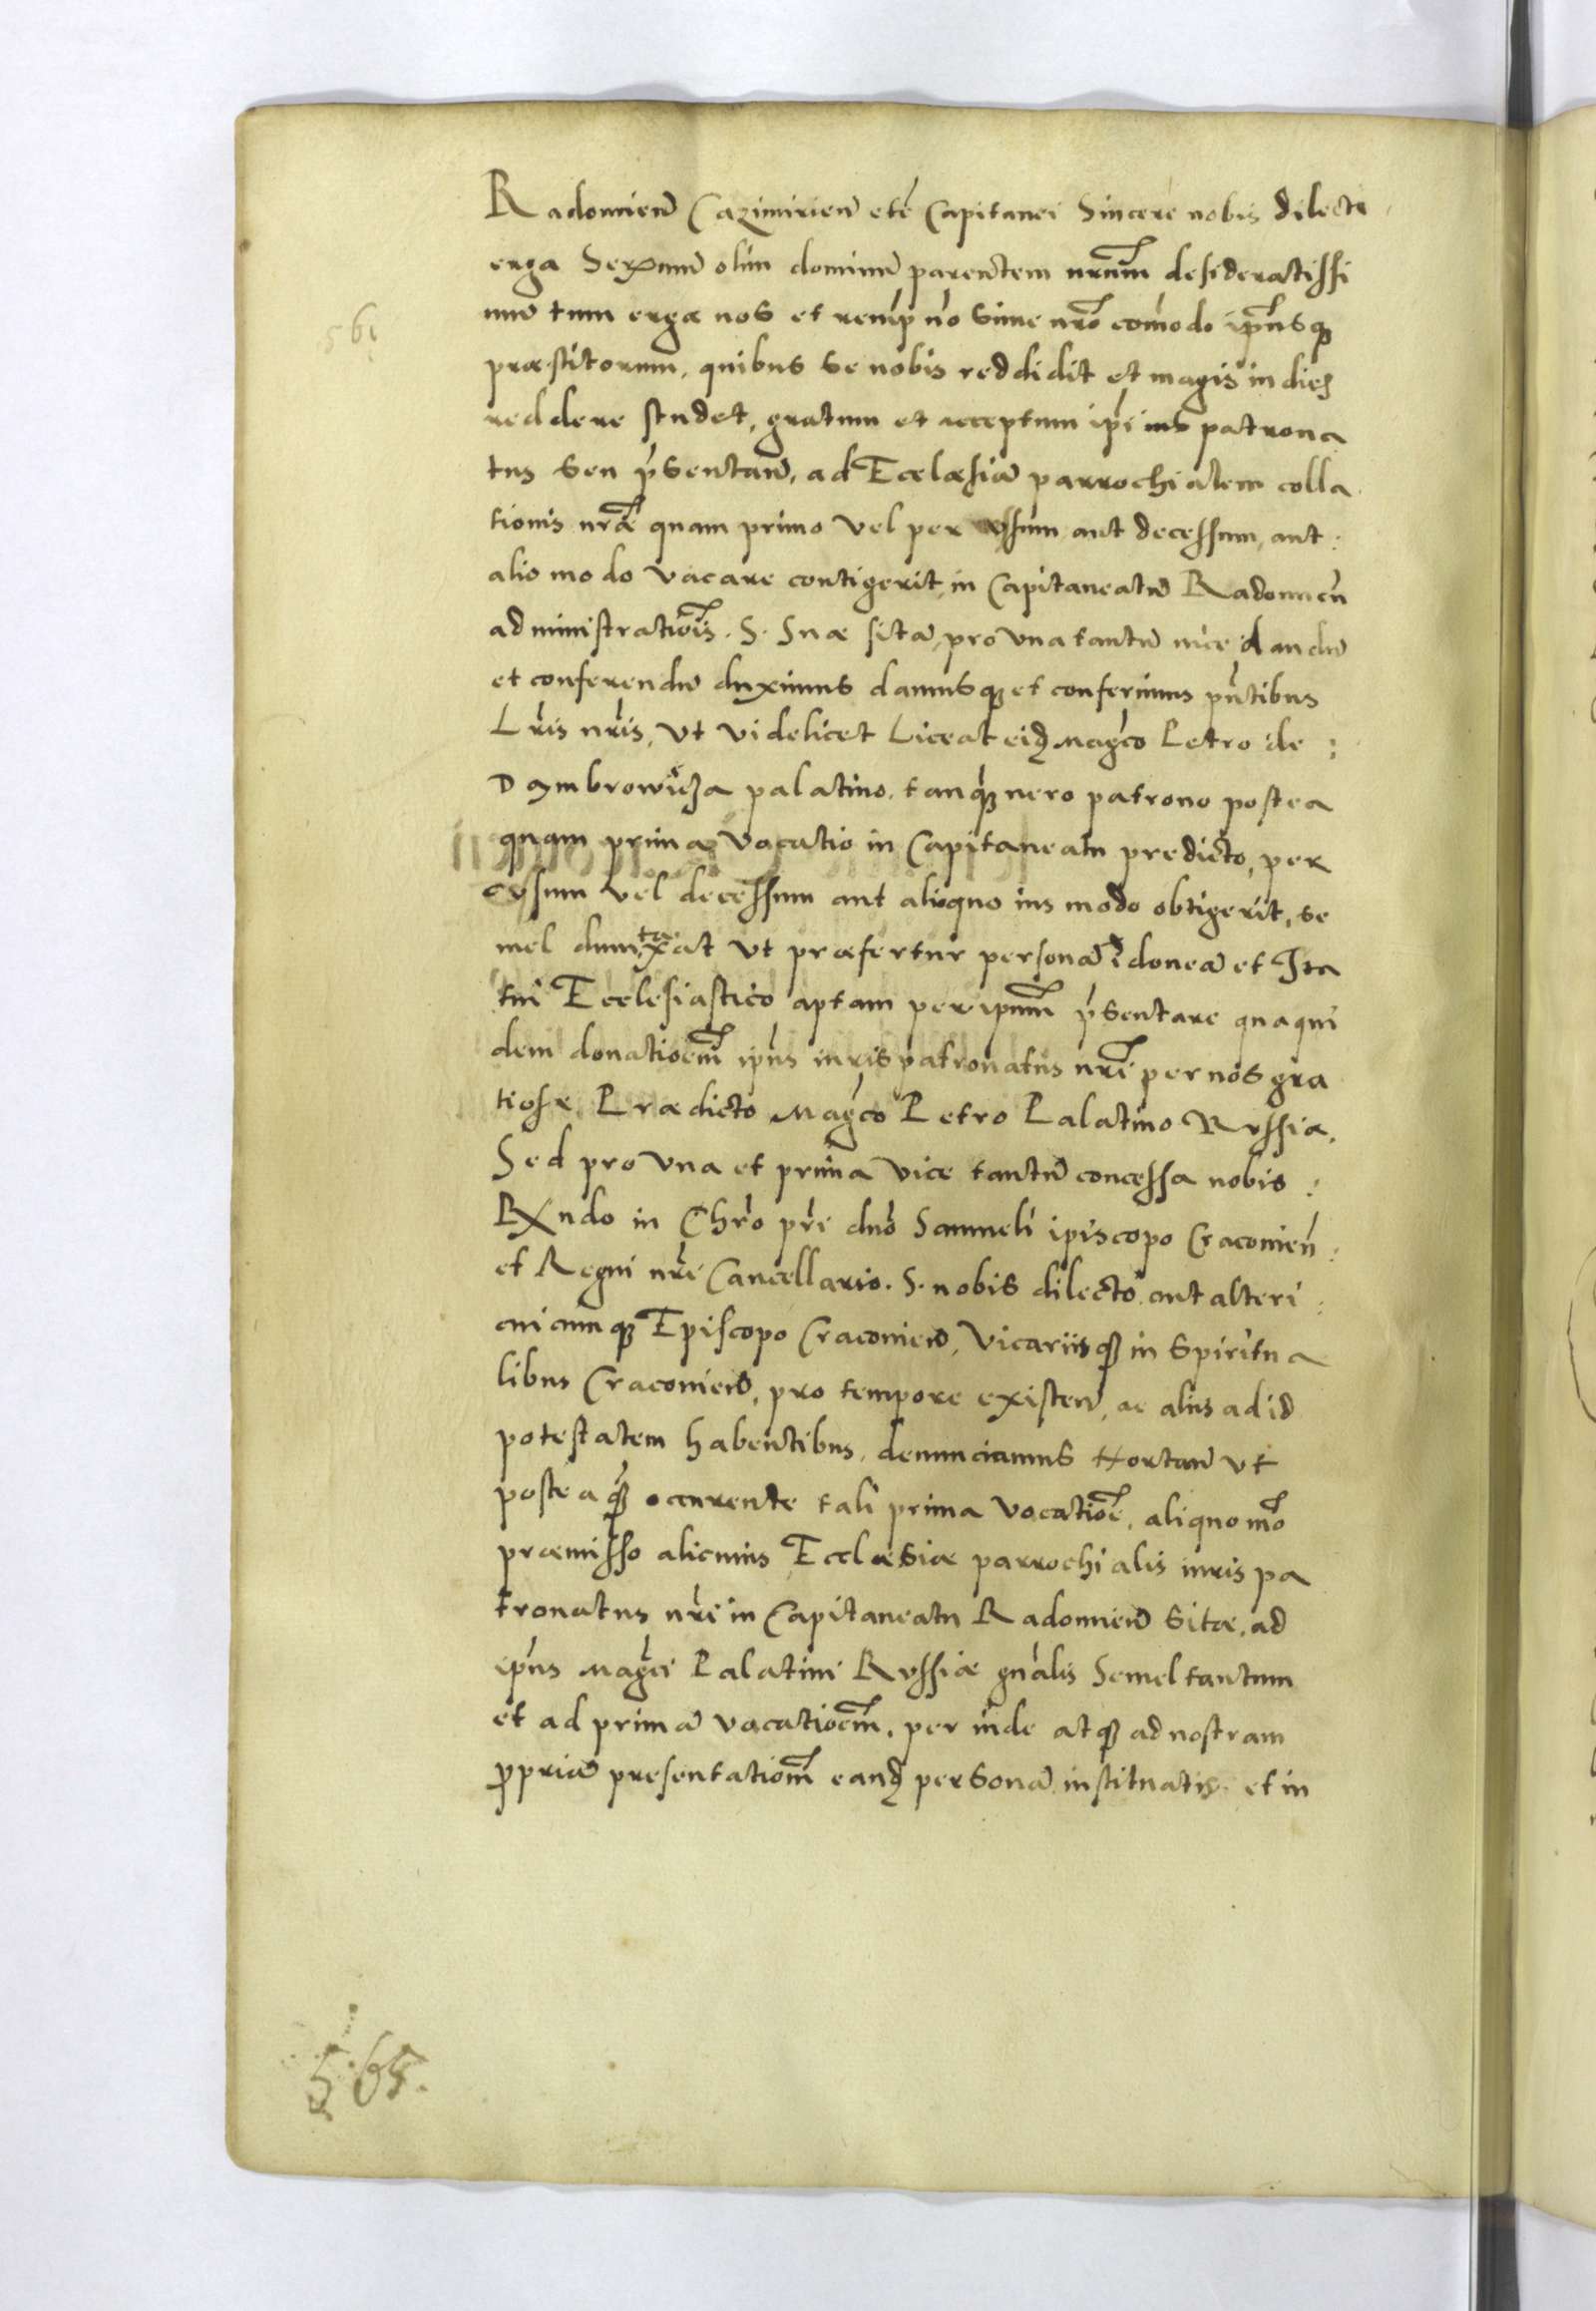 Radomien̄ Cazimirien̄ etc̄ Capitanei Sincere nobis dilecti
erga Serenum̄ olim dominū parentem nrum̄ desideratissi
mū tum erga nos et remp nō sine nrō com̄odo ipnusq̨
præstitorum, quibus se nobis reddidit et magis in dies
reddere studet, gratum et acceptum ipi ius patrona
tus seu p̄sentan̄, ad Ecclæsiā parrochialem colla
tionis nrǣ quam primo vel per assum aut decessum, aut :
alio modo vacare contigerit, in Capitaneatū Radomien̄
administratiōis . S. Suæ sitā, pro una tantū vice dandū
et conferendū duximus damusq̨ et conferimus pn̄tibus
Lris̄ nris̄, ut videlicet Liceat eid̨ Magc̄o Petro de :
Dambrowicza palatino. tanq̨ vero patrono postea
quam prima vacatio in Capitaneatu predicto, per
cessum vel decessum aut alioquo ius modo obtigerit, se
mel dumtaxat ut præfertur personā idoneā et Sta
tui Ecclesiastico aptam per ipsum̄ p̄sentare qua qui
dem donatioem̄ ipn̄s iuris patronatus nri̅ per nos gra
tiose Prædicto Magc̄o Petro Palatino Russiæ,
Sed pro una et prima vice tantū concessa nobis :
Rxndo in Chrō prī dnō Samueli ipiscopo Cracouien̄ :
et Regni nri̅ Cancellario. S. nobis dilecto aut alteri :
cuicumq̨ Episcopo Cracouien̄, Vicariisq̨ in Spiritua
libus Cracouien̄, pro tempore existen̄, ac aliis ad id
potestatem habentibus, denunciamus Hortan̄ ut
posteaq̨ occurente tali prima vocatiōe, aliquo mō
præmisso alicuius Ecclæsiæ parrochialis iuris pa
tronatus nri̅ in Capitaneatu Radomien̄ Sitæ, ad
ipn̄s Magc̄i Palatini Russiæ gnālis Semel tantum
et ad primā vacatioem̄, per inde atq̨ ad nostram
propriā presentatiom̄ eand̨ personā instituatis et in
561
565.